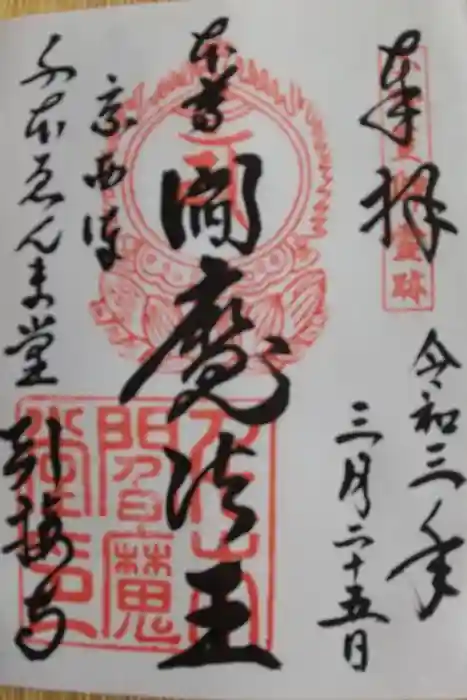 奉拝
令和三年
三月二十五日
本尊
閻魔法王
京西陣
千本ゑんま堂
引接寺